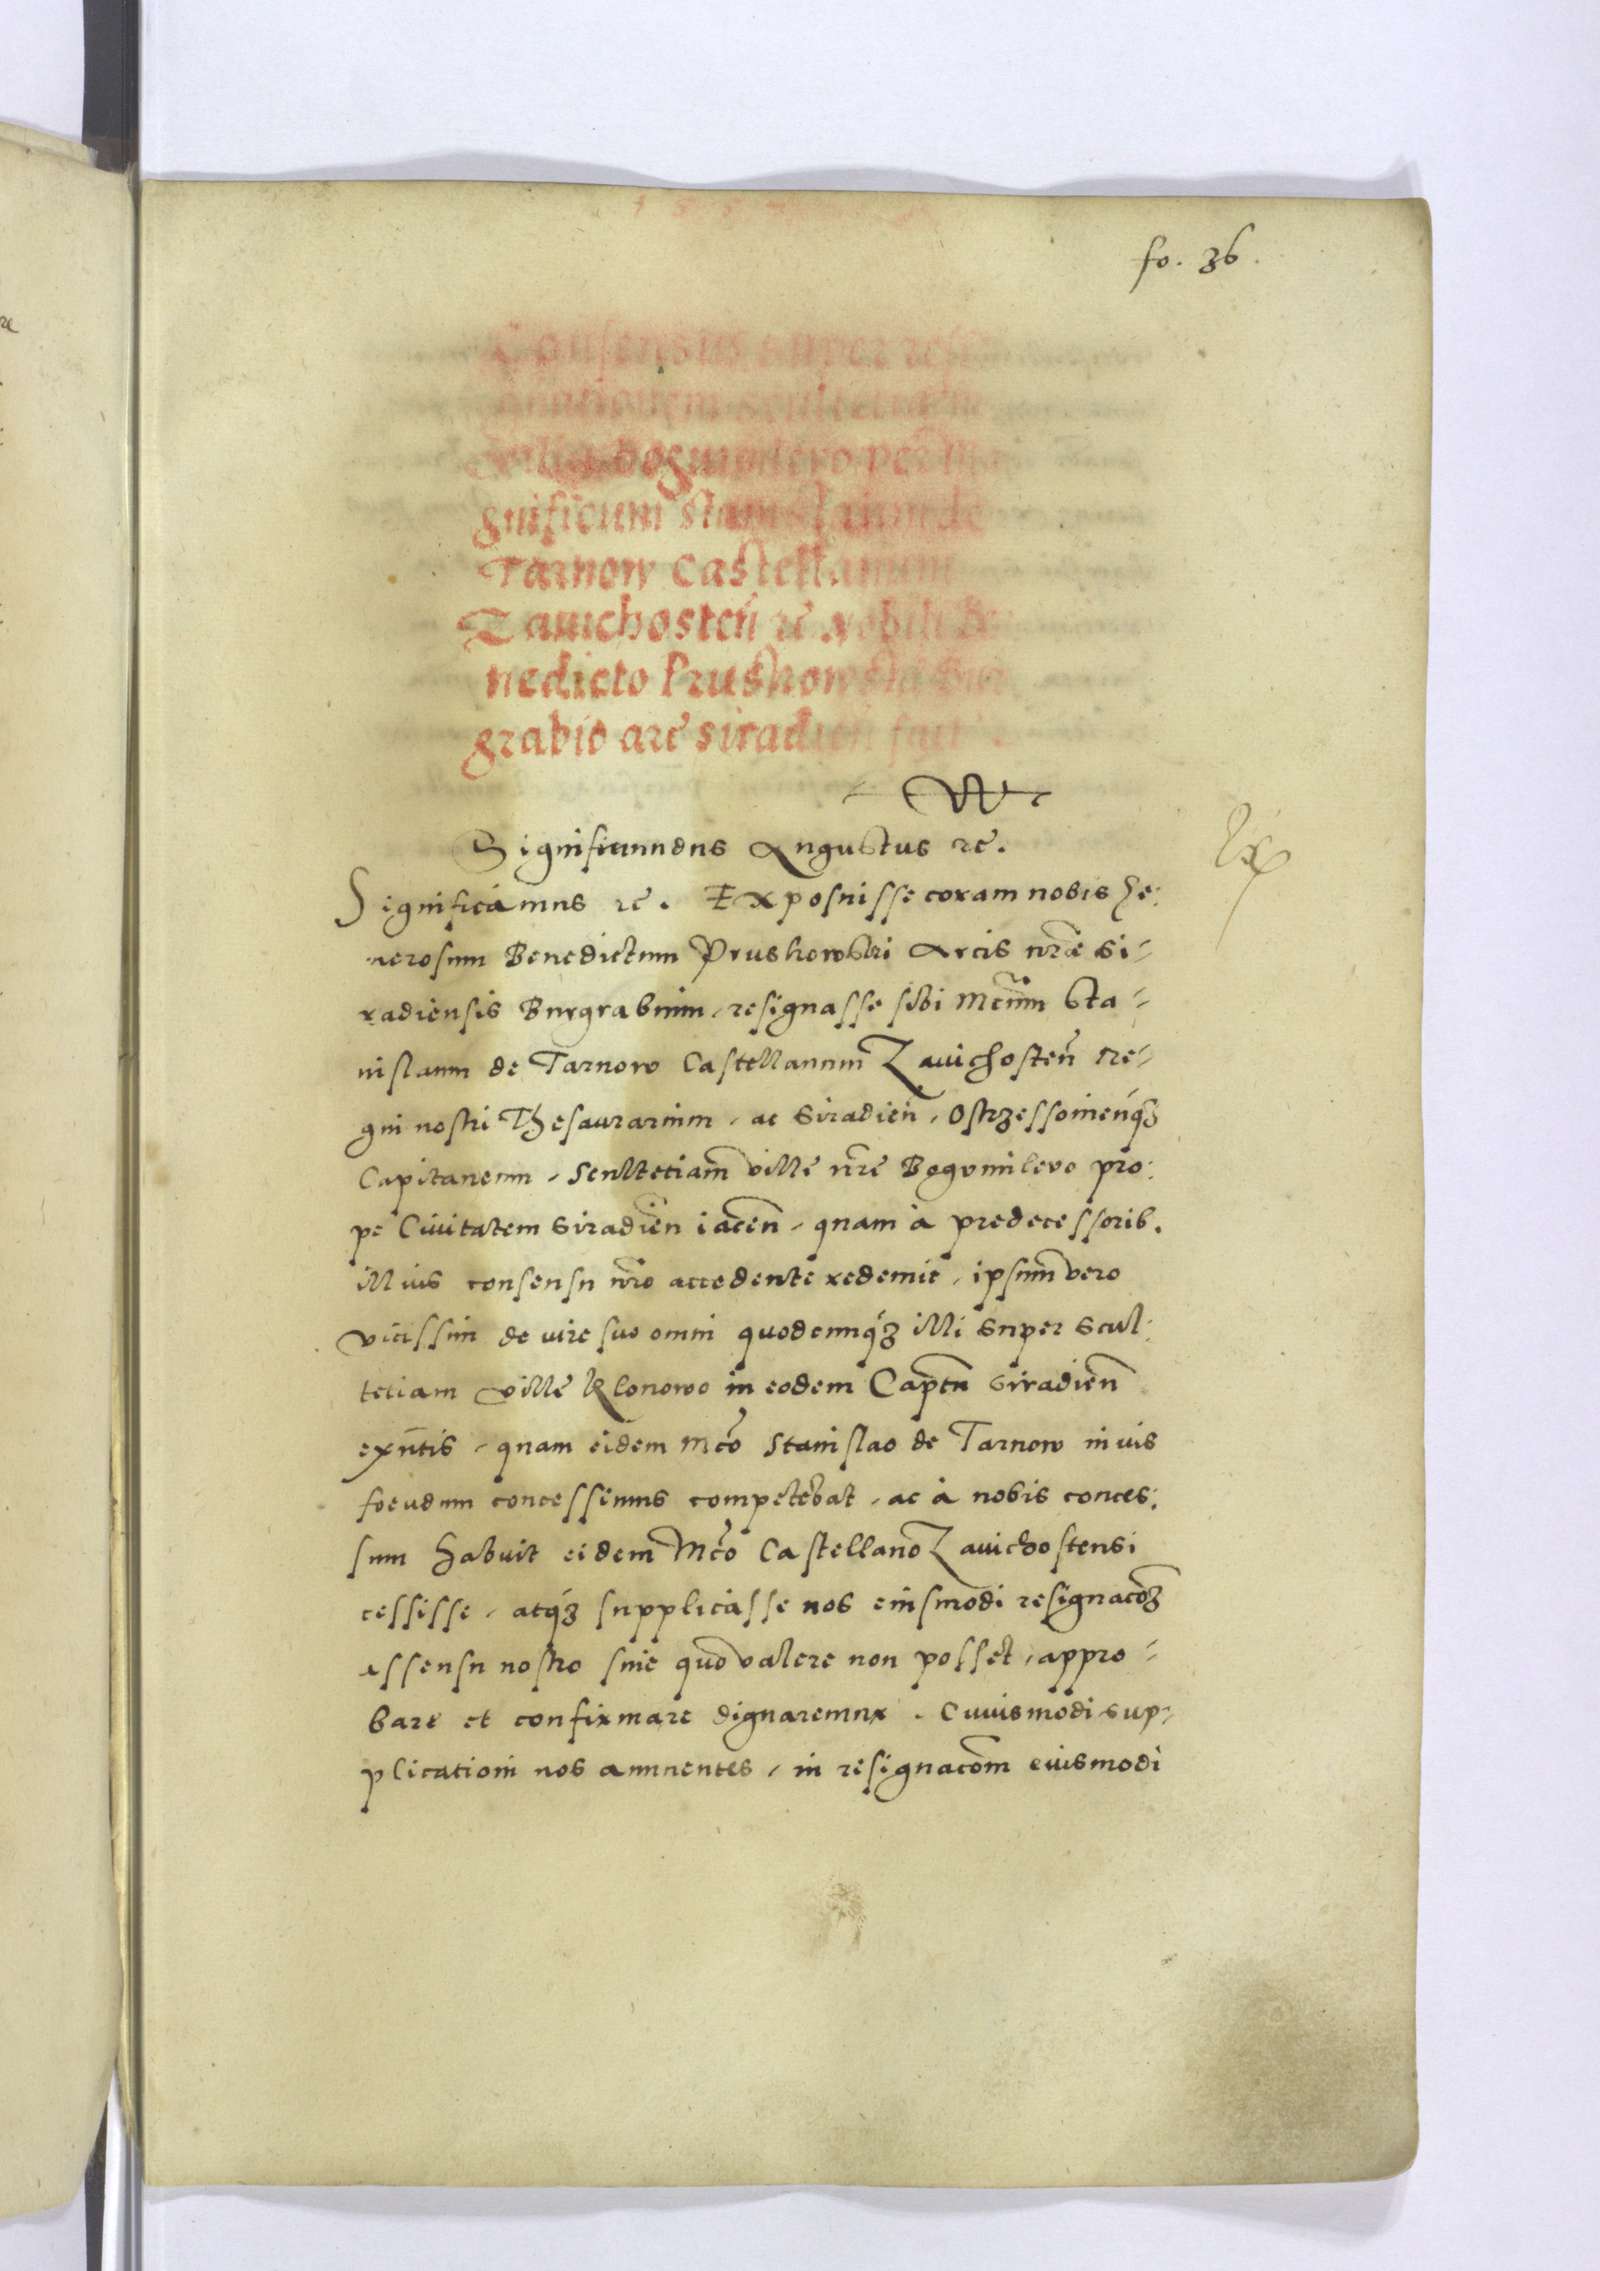 fo. 36.
Consensus super resi
gnationem scultetiae in
villa Bogumilevo per Ma
gnificum Stanislaum de
Tarnow Castellanum
Zauichosten̄ zc Nobili Be
nedicto Pruskowski Bur
grabio arc̄ siradien̄ fact
Sigismundus Augustus zc.
Significamus zc. Exposuisse coram nobis Ge:
nerosum Benedictum Pruskowski Arcis nr̄ae Si-
radiensis Burgrabium, resignasse sibi Mcūm Sta-
nislaum de Tarnow Castellanum Zauichosten̄ Re-
gni nostri Thesaurarium, ac Siradien̄, Ostrzessouien̄q3
Capitaneum, Scultetiam villę nr̄e Bogumilevo pro:
pe Civitatem Siradien̄ iacen̄, quam à predecessorib.
illius consensu nr̄o accedente redemit, ipsum vero
vicissim de iure suo omni quodcunq3 illi super Scul:
tetiam villę Klonowo in eodem Captn̄ Siradien̄
exn̄tis, quam eidem Mc̄o Stanislao de Tarnow in ius
foeudum concessimus competebat, ac à nobis conces:
sum habuit eidem Mc̄o Castellano Zauichostensi
cessisse, atq3 supplicasse nos eiusmodi resignaco͞3
assensu nostro sine quo valere non posset, appro-
bare et confirmare dignaremur. Cuiusmodi sup-
plicationi nos annuentes, in resignaco͞m eiusmodi